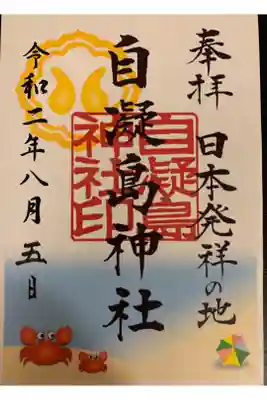 奉拝
日本発祥の地
自凝島神社
自凝島神社印
令和二年八月五日